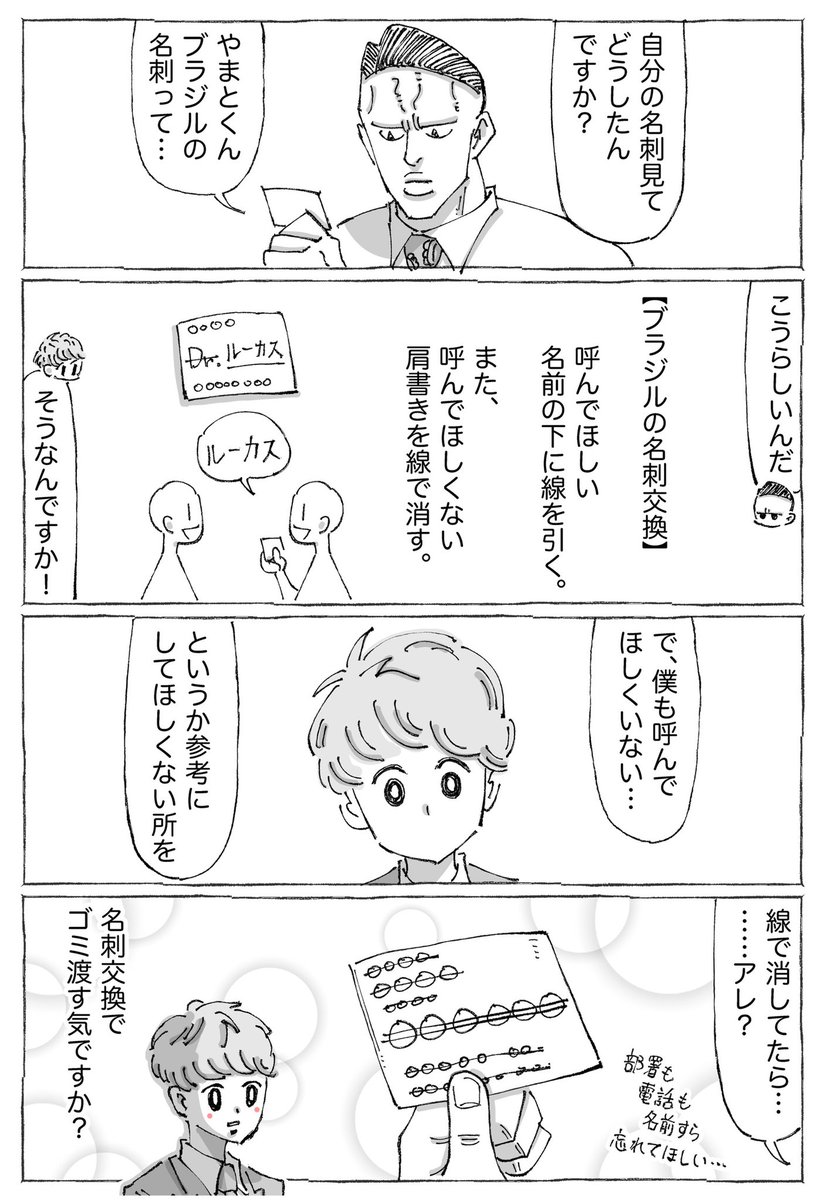 自分の名刺見て
どうしたん
ですか？
やまとくん
ブラジルの
名刺って…
こうらしいんだ
【ブラジルの名刺交換】
呼んでほしい
名前の下に線を引く。
また、
呼んでほしくない
肩書きを線で消す。
Dr.ルーカス
ルーカス
そうなんですか！
で、僕も呼んで
ほしくいない…
というか参考に
してほしくない所を
線で消してたら…
……アレ？
部署も
電話も
名前すら
忘れてほしい…
名刺交換で
ゴミ渡す気ですか？